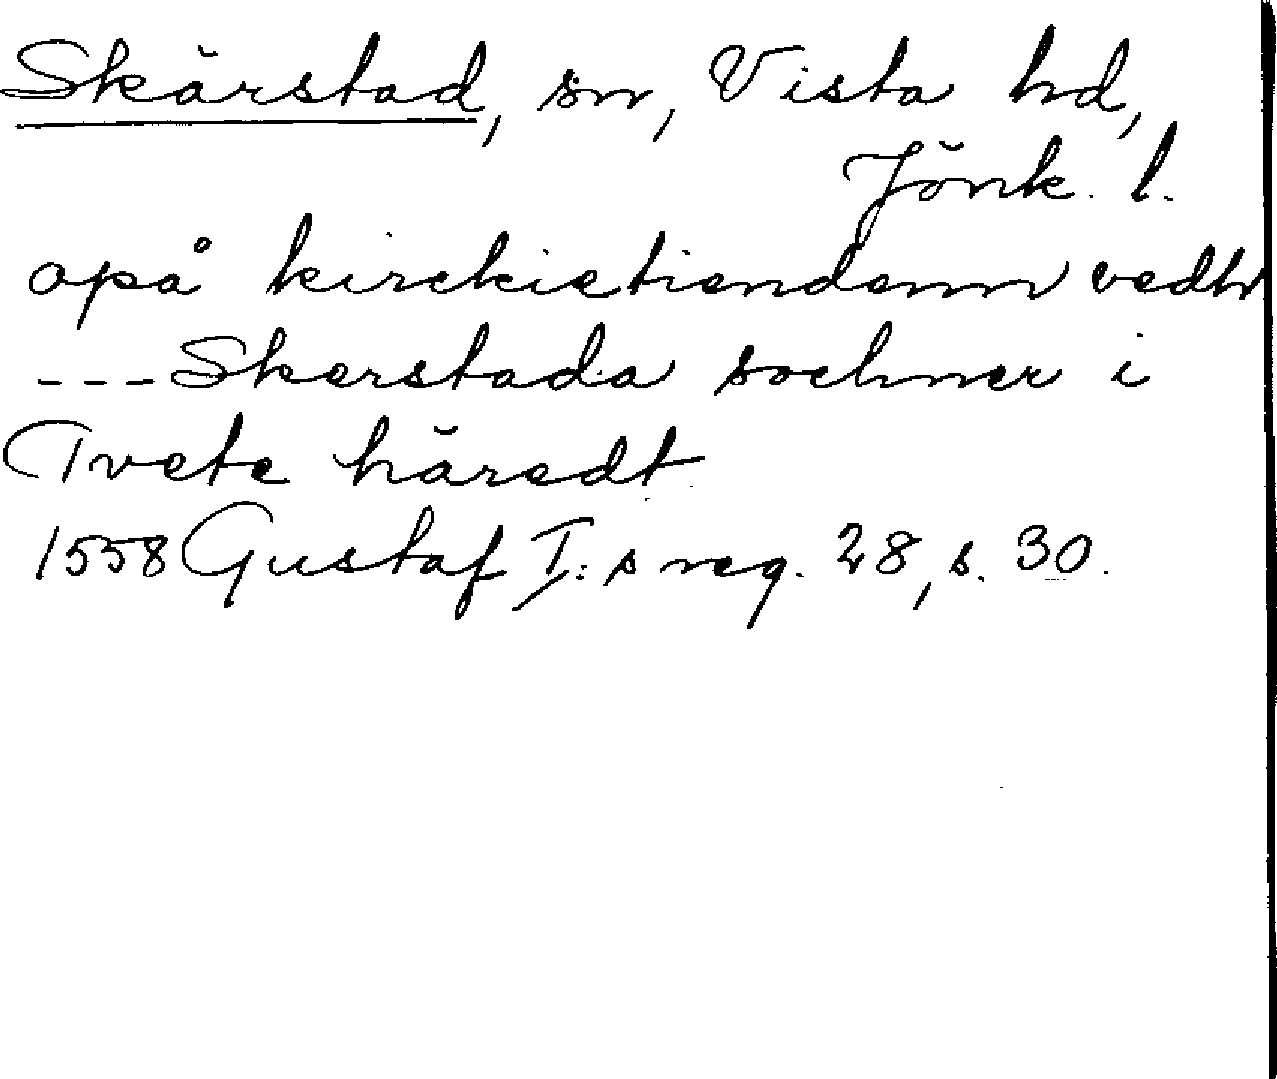 Skärstad, sn, Vista hd,
Jönk. l.
opå kirckietiendenn vedh
--- Skerstada sochner i
Tvete häredt
1558 Gustaf I:s reg. 28, s. 30.